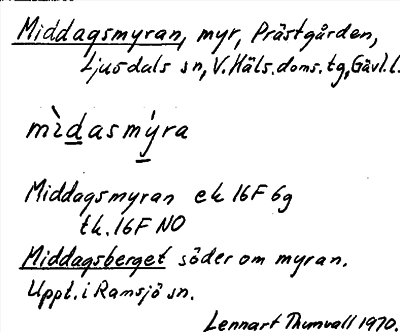 Middagsmyran, myr, Prästgården,
Ljusdals sn, V. Häls. doms. tg, Gävl. l.
mìdasmýra
Middagsmyran ek 16F 6g
tk. 16F NO
Middagsberget söder om myran.
Uppt. i Ramsjö sn.
Lennart Thunvall 1970.